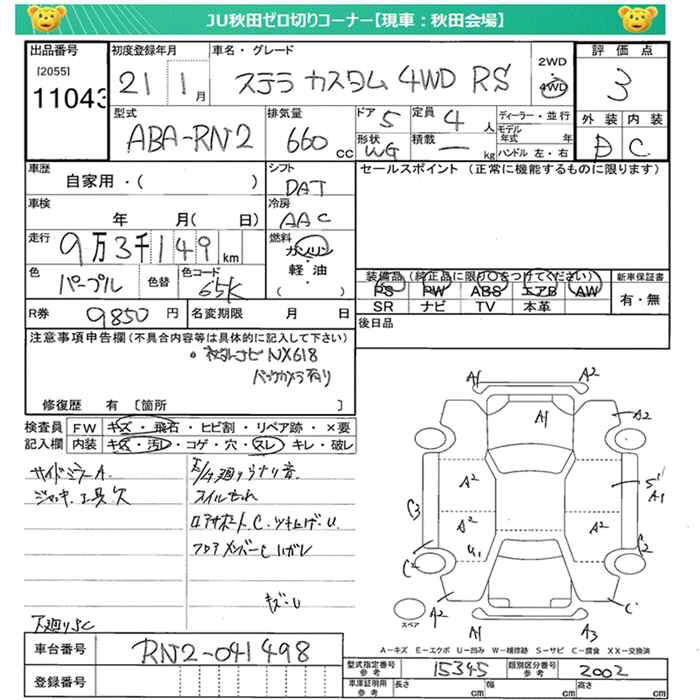 JU秋田ゼロ切りコーナー【現車：秋田会場】
出品番号
[2055]
11043
初度登録年月
21 1月
車名・グレード
ステラ カスタム 4WD RS
2WD
4WD
評価点
3
外装 内装
D C
型式
ABA-RN2
排気量
660 cc
ドア 5
形状 WG
定員 4 人
積載 ー kg
ディーラー・並行
モデル年式 年
ハンドル 左・右
車歴
自家用・( )
シフト
DAT
セールスポイント (正常に機能するものに限ります)
車検
年 月( 日)
冷房
AAC
走行
9万3千149km
燃料
ガソリン
・
軽・油
( )
色
パープル
色替
色コード
65K
装備品(純正品に限り○をつけてください)
PS PW ABS エアB AW
SR ナビ TV 本革
新車保証書
有・無
R券 9850円
名変期限 月 日
後日品
注意事項申告欄(不具合内容等は具体的に記入して下さい)
NX618
バックカメラ有り
修復歴 有 〔箇所 〕
検査員記入欄
FW キズ・飛石・ヒビ割・リペア跡・×要
内装 キズ・汚レ・コゲ・穴・スレ・キレ・破レ
サイドミラーA
ジャッキ、工具欠
下廻りSC
キズ・U
A1 A2
A1 A2
A2 S1 A1
C3 A2 A2
U1 C2
C2
A2 C
A1 A3
スペア
A－キズ E－エクボ U－凹み W－補修跡 S－サビ C－腐食 XX－交換済
車台番号
RN2-041498
登録番号
型式指定番号 参考 15345
類別区分番号 参考 2002
車庫証明用 参考
長さ cm 幅 cm 高さ cm